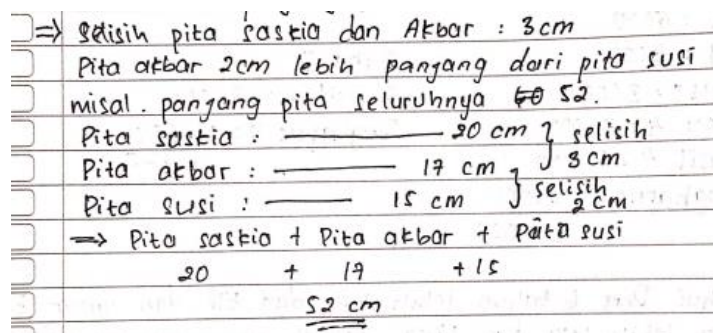 => Selisih pita saskia dan Akbar : 3 cm
Pita akbar 2cm lebih panjang dari pita susi
misal. panjang pita seluruhnya 52.
Pita saskia : 20 cm } selisih
Pita akbar : 17 cm } 3 cm
Pita susi : 15 cm } selisih 2 cm
=> Pita saskia + Pita akbar + Pita susi
20 + 17 + 15
52 cm